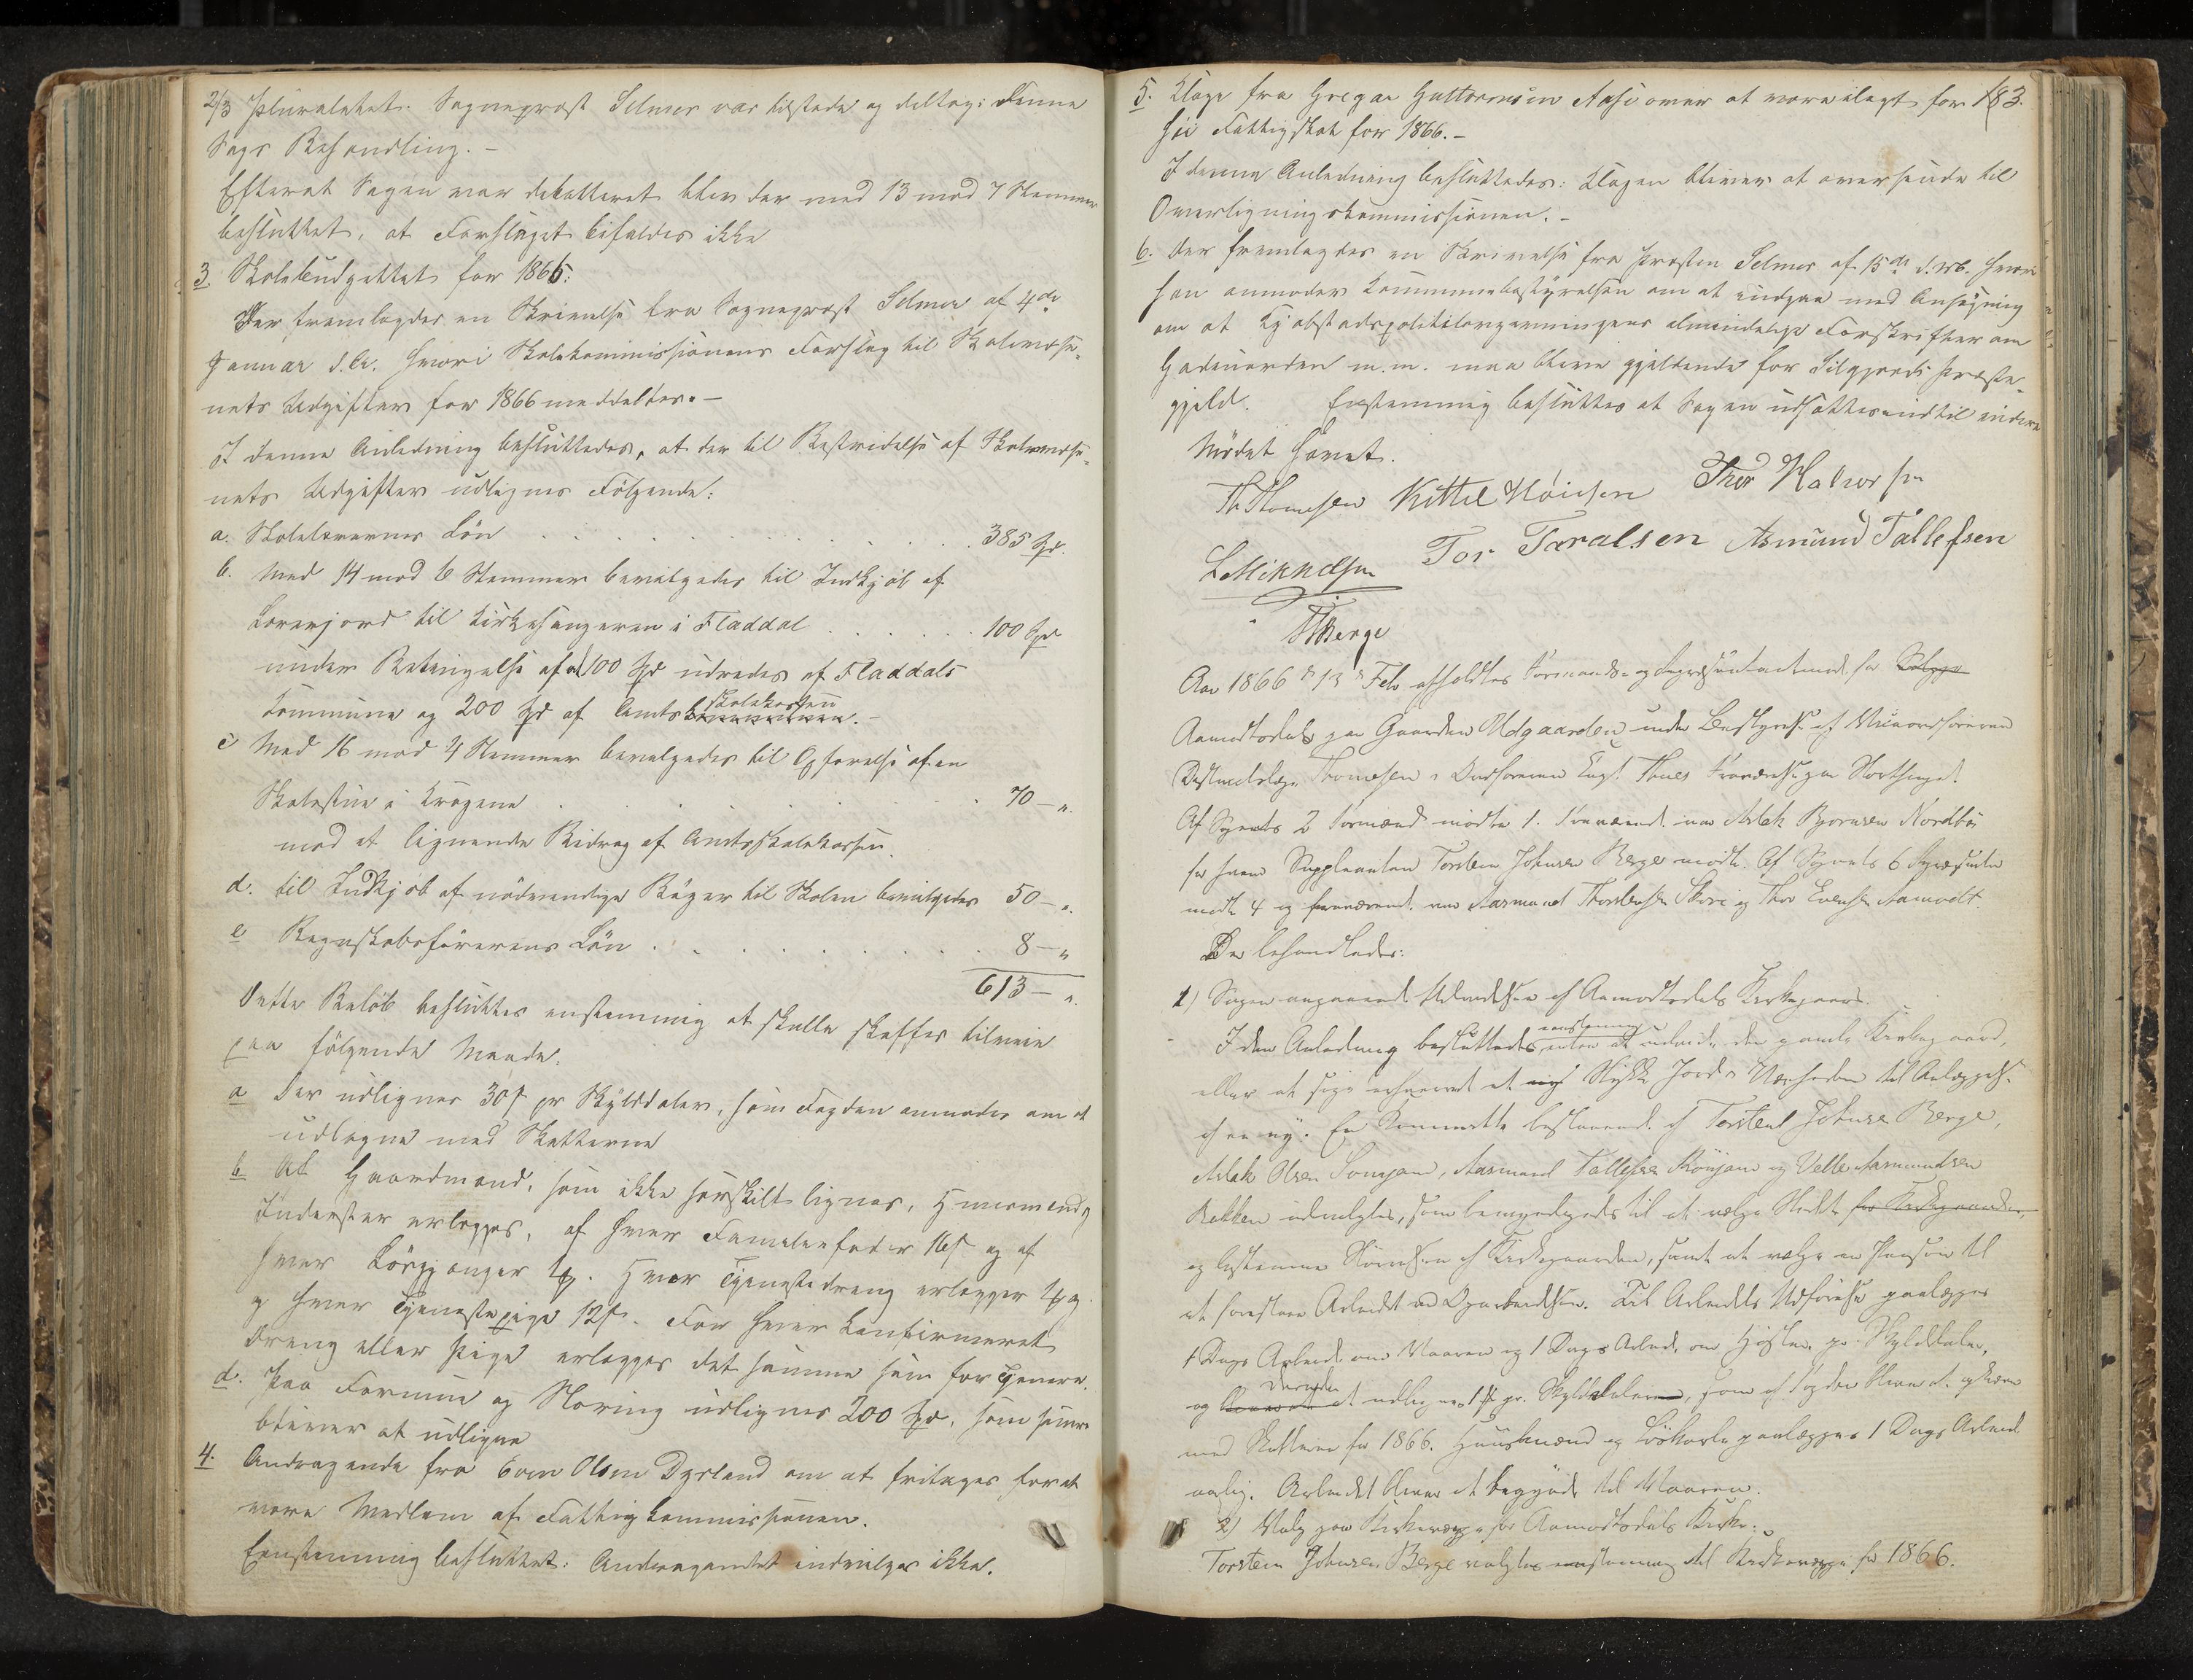 2/3 Pluralitet. Sogneprest Selmer var tilstede og deltog i denne
Sags Behandling. –
Efterat Sagen var debatteret blev der med 13 mod 7 Stemmer
besluttet, at Forslaget bifaldes ikke
3. Skolebudgettet for 1866:
Der fremlagdes en Skrivelse fra Sogneprest Selmer af 4de
Januar d.A. hvori Skolekommissionens Forslag til Skolevæse-
nets Udgifter for 1866 meddeltes. –
I denne Anledning besluttedes, at der til Bestridelse af Skolevæse-
nets Udgifter udlignes Følgende:
a. Skolelærernes Løn . . . . 385 Spd.
b. Med 14 mod 6 Stemmer bevilgedes til Indkjøb af
Lærerjord til Kirkesangeren i Fladdal . . . . 100 Spd
under Betingelse af at 100 Spd udredes af Fladdals
Kommune og 200 Spd af Amtsskolekassen. –
c Med 16 mod 4 Stemmer bevilgedes til Opførelse af en
Skolestue i . . . . 70 – „.
mod et lignende Bidrag af Amtsskolekassen.
d. til Indkjøb af nødvendige Bøger til Skolen bevilgedes 50 – „.
e Regnskabsførerens Løn . . . . 8 – „
613 – „.
Dette Beløb besluttes enstemmig at skulle skaffes tilveie
paa følgende Maade.
a Der udlignes 30 s pr Skylddaler, som Fogden anmodes om at
udligne med Skatterne
b At Gaardmænd, som ikke særskilt lignes, Huusmænd og
Inderster erlægges, af hver Familiefader 16 s og af
hver Løsgjænger. Hver Tjenestedreng erlægger
og hver Tjenestepige 12 s. For hver konfirmeret
Dreng eller Pige erlægges det samme som for Tjenere.
d. Paa Formue og Næring udlignes 200 Spd, som
bliver at udligne
4. Andragende fra Even Olsen Dyrland om at fritages for at
være Medlem af Fattigkommissionen.
Eenstemmig besluttet: Andragendet indvilges ikke.
183.
5. Klage fra Gregar Guttormsen Aase over at være ilagt for
høi Fattigskat for 1866. –
I denne Anledning besluttedes: Klagen bliver at oversende til
Overligningskommissionen. –
6. Der fremlagdes en Skrivelse fra Presten Selmer af 15de hvori
han anmoder Kommunebestyrelsen om at indgaa med Ansøgning
om at Kjøbstadspolitilovgivningens almindelige Forskrifter om
Gadeuorden m.m. maa blive gjeldende for Silgjords Præste-
gjeld. Enstemmig besluttes at Sagen udsættes indtil videre
Mødet hævet.
Th Thomesen Kittil Høiesen Thor Halvorsen
L Mikkelsen Tor Taralsen Asmund Tallefsen
Berge
Aar 1866 d 13 Feb afholdtes Formands- og Repræsentantmøde for
Aamotsdals paa Gaarden Midgaarden under Bestyrelse af Viceordføreren
Distriktslæge Thomesen i Ordføreren Fraværelse paa Storthinget.
Af Sognets 2 Formænd mødte 1. Fraværende var Aslak Bjornsen Nordbø
for hvem Suppleanten Torsten Johnsen Berge mødte. Af Sognets 6 Repræsentanter
mødte 4 og fraværende var Aasmund Thorstensen Skori og Thor Evensen Aamodt.
Der behandledes:
1) Sagen angaaende Udvidelsen af Aamodtsdals Kirkegaard.
I den Anledning besluttedes eenstemmig enten at udvide den gamle Kirkegaard,
eller at søge erhvervet et nyt Stykke Jord i Nærheden til Anlæggelse
af en ny. En Committee bestaaende af Torstein Johnsen Berge,
Aslak Olsen Songjem, Aasmund Tallefsen Rönjom og Velle Aasmundsen
Bakken udvalgtes, som bemyndigedes til at vælge Stedet for Kirkegaarden,
og bestemme Størrelsen af Kirkegaarden, samt at vælge en Person til
at forestaae Arbeidet ved Oparbeidelsen. Til Arbeidets Udførelse paalægges
1 Dags Arbeide om Vaaren og 1 Dags Arbeide om Høsten pr. Skylddaler,
og desuden at udlignes pr. Skylddaleren, som af Fogden bliver at opkræve
med Skatterne for 1866. Huusmænd og Løskarle paalægges 1 Dags Arbeide
aarlig. Arbeidet bliver at begynde til Vaaren.
2) Valg paa Kirkeværge for Aamodtsdals Kirke:
Torstein Johnsen Berge valgtes eenstemmig til Kirkeværge for 1866.